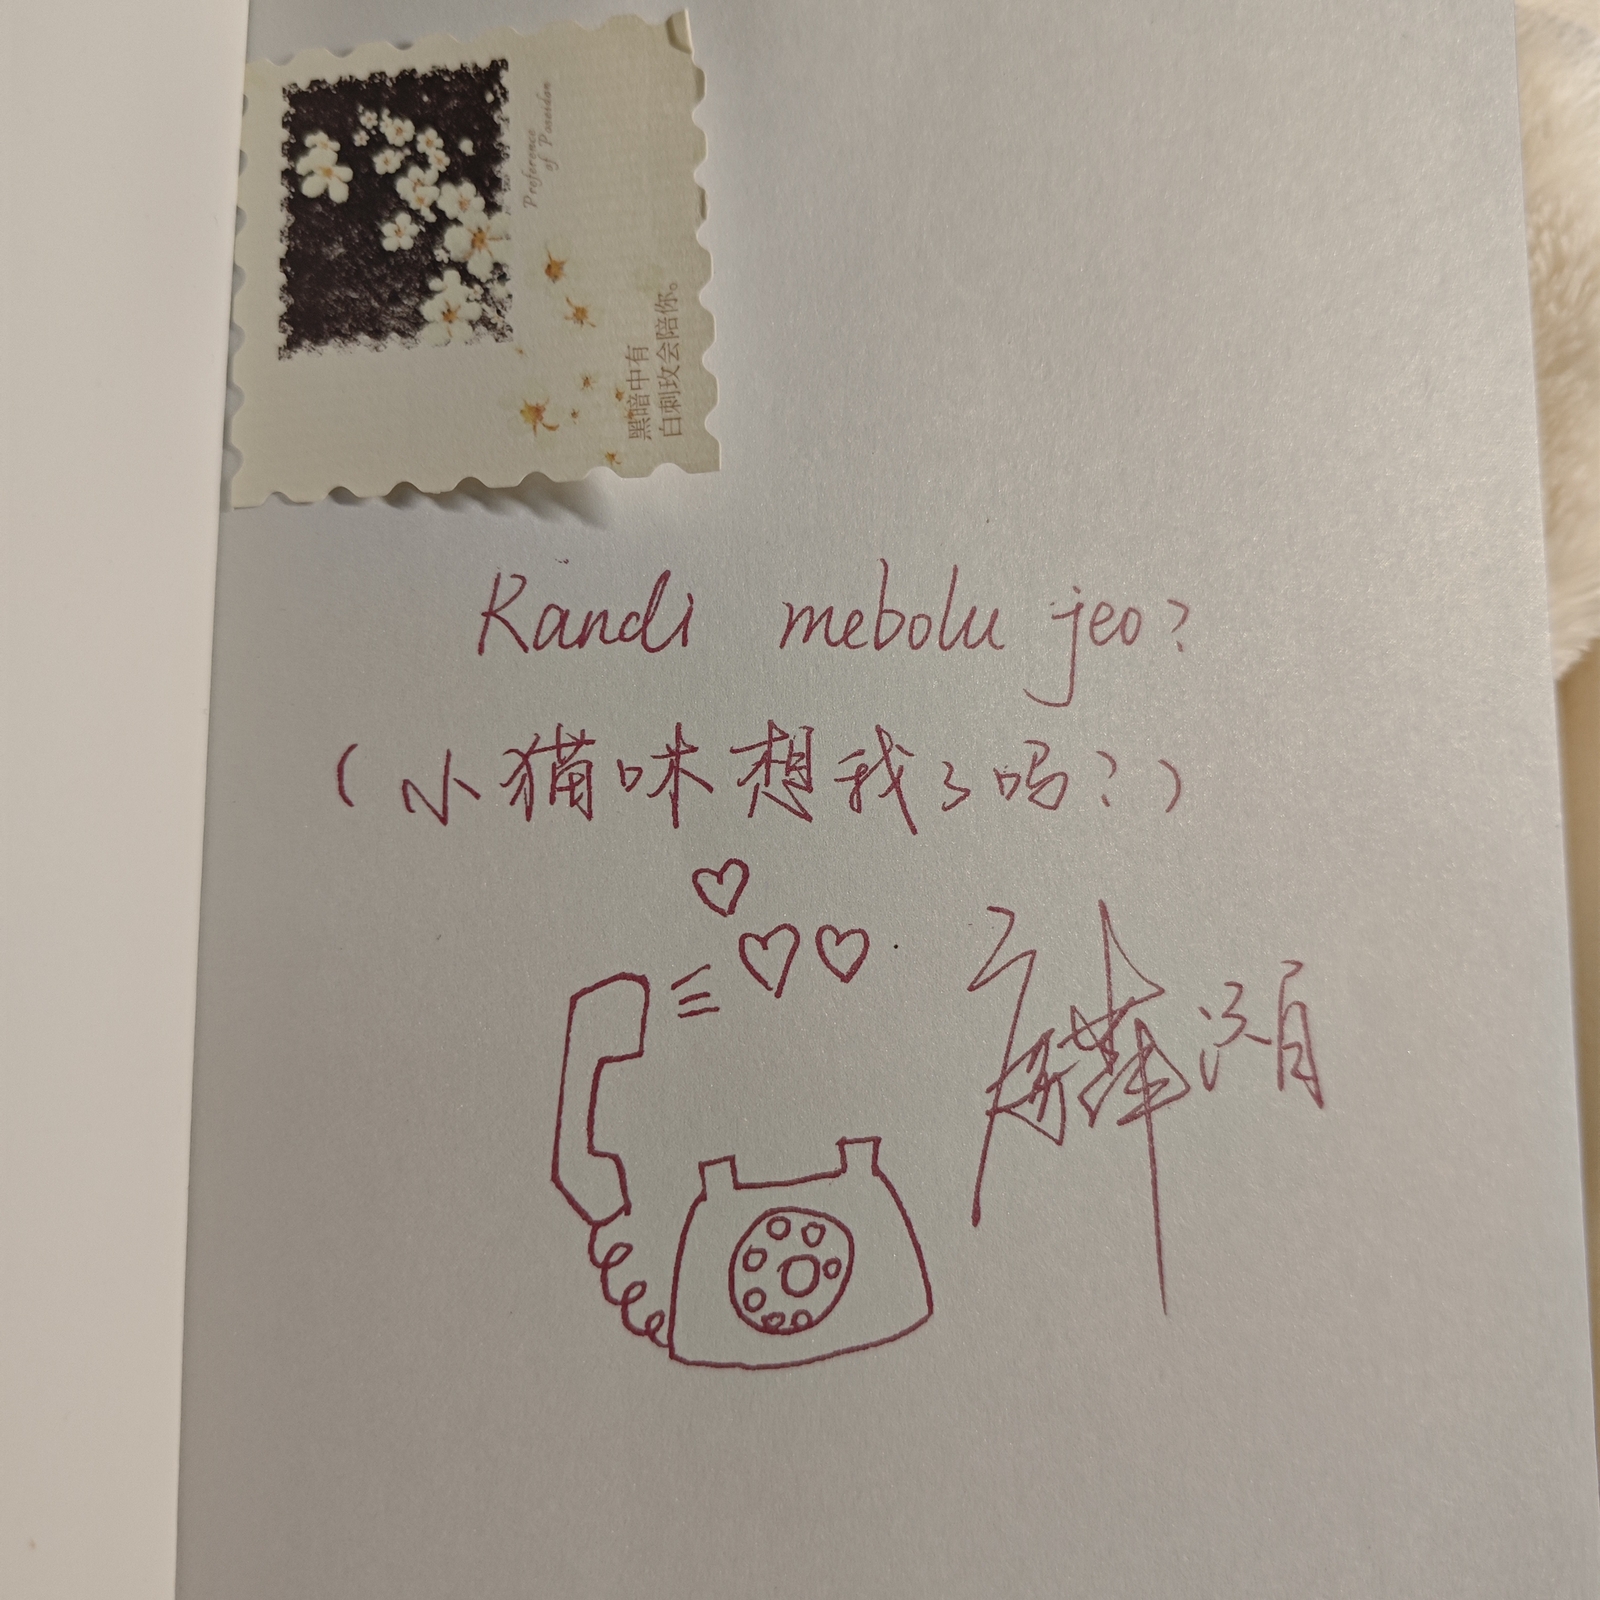 Preference
of Poseidon
黑暗中有
白刺玫会陪你。
Kandi mebolu jeo?
(小猫咪想我了吗?)